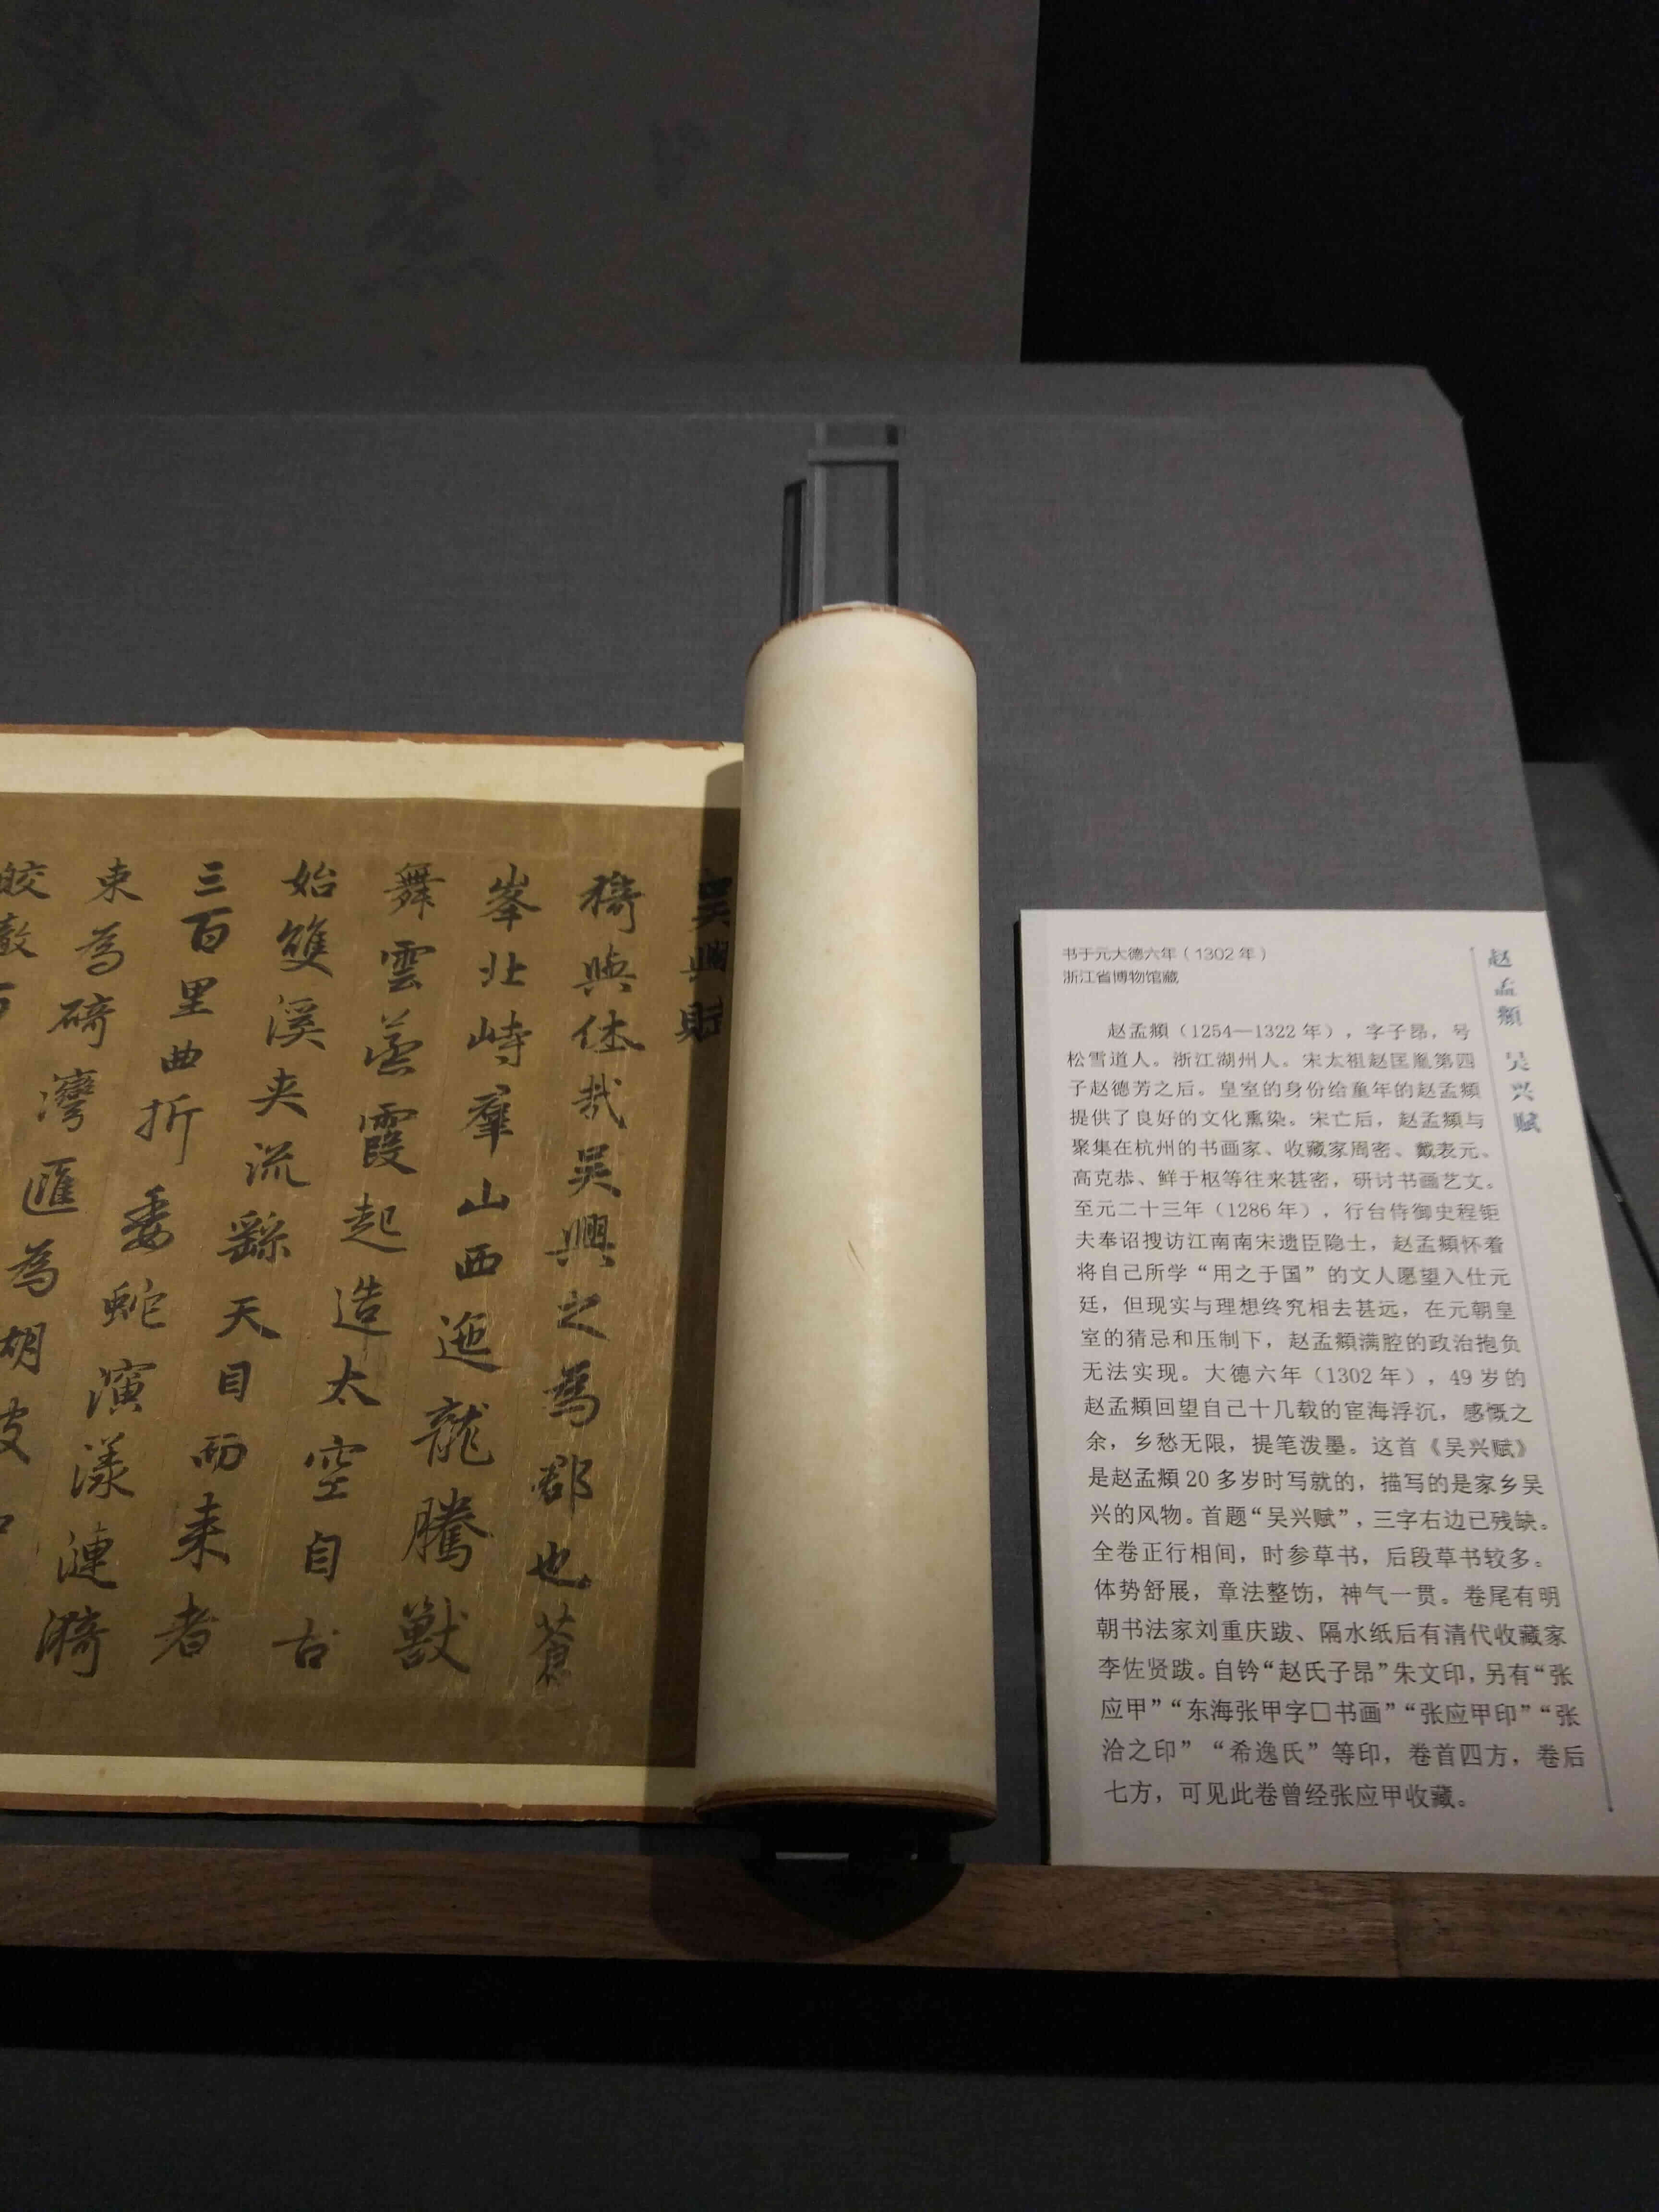 吳興賦
猗與休哉吳興之為郡也蒼
峯北峙羣山西迤龍騰獸
舞雲蒸霞起造太空自古
始雙溪夾流繇天目而来者
三百里曲折委蛇演漾漣漪
東為碕灣匯為
皎澈百
赵孟頫 吴兴赋
书于元大德六年（1302 年）
浙江省博物馆藏
赵孟頫（1254—1322 年），字子昂，号
松雪道人。浙江湖州人。宋太祖赵匡胤第四
子赵德芳之后。皇室的身份给童年的赵孟頫
提供了良好的文化熏染。宋亡后，赵孟頫与
聚集在杭州的书画家、收藏家周密、戴表元、
高克恭、鲜于枢等往来甚密，研讨书画艺文。
至元二十三年（1286 年），行台侍御史程钜
夫奉诏搜访江南南宋遗臣隐士，赵孟頫怀着
将自己所学“用之于国”的文人愿望入仕元
廷，但现实与理想终究相去甚远，在元朝皇
室的猜忌和压制下，赵孟頫满腔的政治抱负
无法实现。大德六年（1302 年），49 岁的
赵孟頫回望自己十几载的宦海浮沉，感慨之
余，乡愁无限，提笔泼墨。这首《吴兴赋》
是赵孟頫 20 多岁时写就的，描写的是家乡吴
兴的风物。首题“吴兴赋”，三字右边已残缺。
全卷正行相间，时参草书，后段草书较多。
体势舒展，章法整饬，神气一贯。卷尾有明
朝书法家刘重庆跋、隔水纸后有清代收藏家
李佐贤跋。自钤“赵氏子昂”朱文印，另有“张
应甲”“东海张甲字□书画”“张应甲印”“张
洽之印”“希逸氏”等印，卷首四方，卷后
七方，可见此卷曾经张应甲收藏。